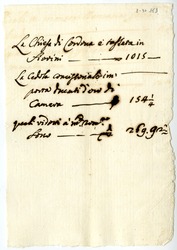 La Chiesa di Cordova è tassata in
fiorini — 1015 —
La Cedola concistoriale im-
porta ducati d'oro di
Camera — 154 1/4
questi ridotti a
sono 269.90